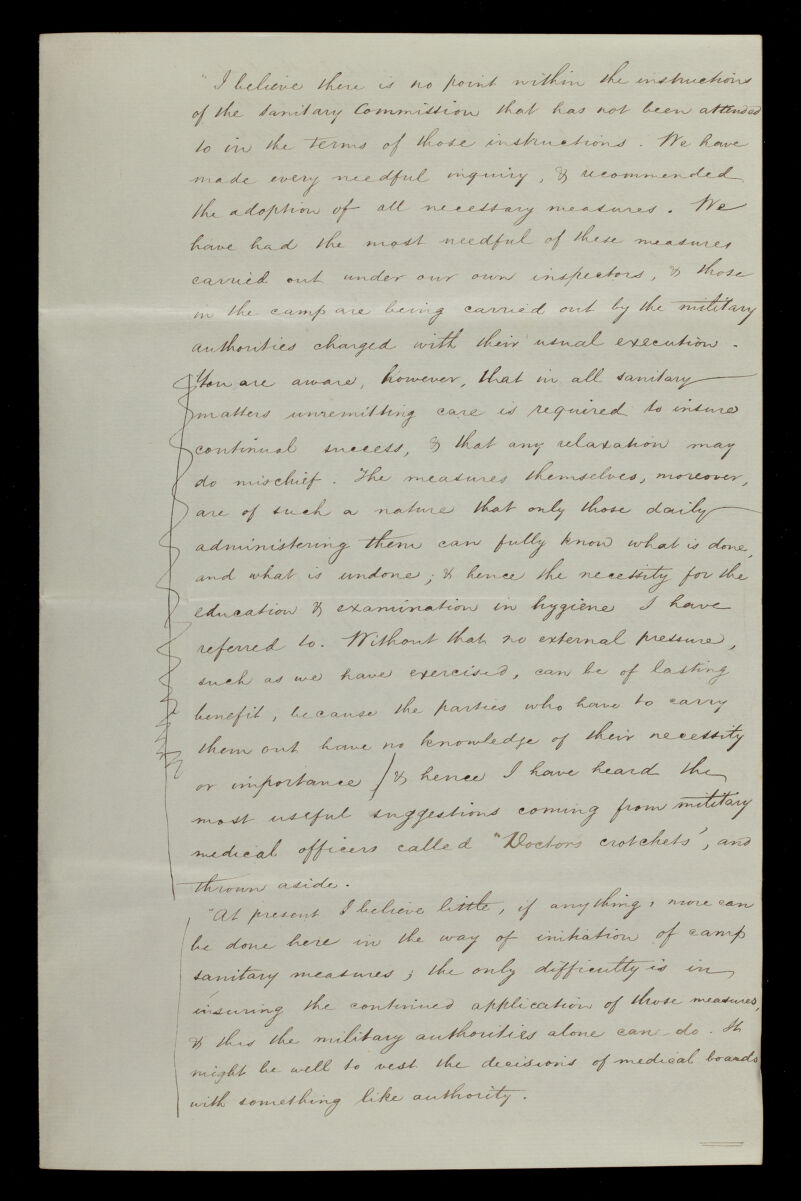 "I believe there is no point within the instructions
of the Sanitary Commission that has not been attended
to in the terms of those instructions. We have
made every needful inquiry, & recommended
the adoption of all necessary measures. We
have had the most needful of these measures
carried out under our own inspectors, & those
in the camp are being carried out by the military
authorities charged with their usual execution.
You are aware, however, that in all sanitary
matters unremitting care is required to insure
continual success, & that any relaxation may
do mischief. The measures themselves, moreover,
are of such a nature that only those daily
administering them can fully know what is done,
and what is undone; & hence the necessity for the
education & examination in hygiene I have
referred to. Without that no external pressure,
such as we have exercised, can be of lasting
benefit, because the parties who have to carry
them out have no knowledge of their necessity
or importance / & hence I have heard the
most useful suggestions coming from military
medical officers called "Doctors crotchets', and
thrown aside.
"At present I believe little, if anything, more can
be done here in the way of initiation of camp
sanitary measures; the only difficulty is in
insuring the continued application of those measures,
& this the military authorities alone can do. It
might be well to vest the decisions of medical boards
with something like authority.